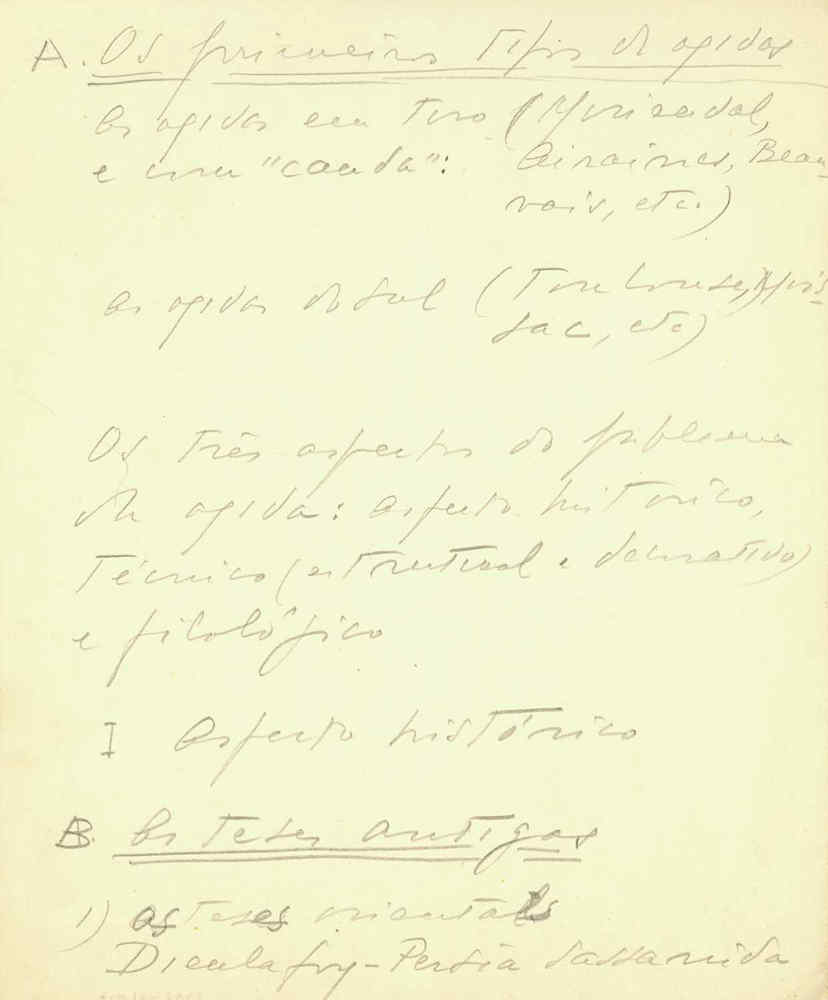 A. Os primeiros tipos de ogivas
As ogivas em toro (Morienval,
e com "cauda": Airaines, Beau-
vais, etc.)
as ogivas do Sul (Toulouse, Mois-
sac, etc)
Os três aspectos do problema
da ogiva: aspecto histórico,
técnico (estrutural e decorativo)
e filológico
I Aspecto histórico
B. As teses antigas
1) as teses orientais
Dieulafoy - Persia Sassanida